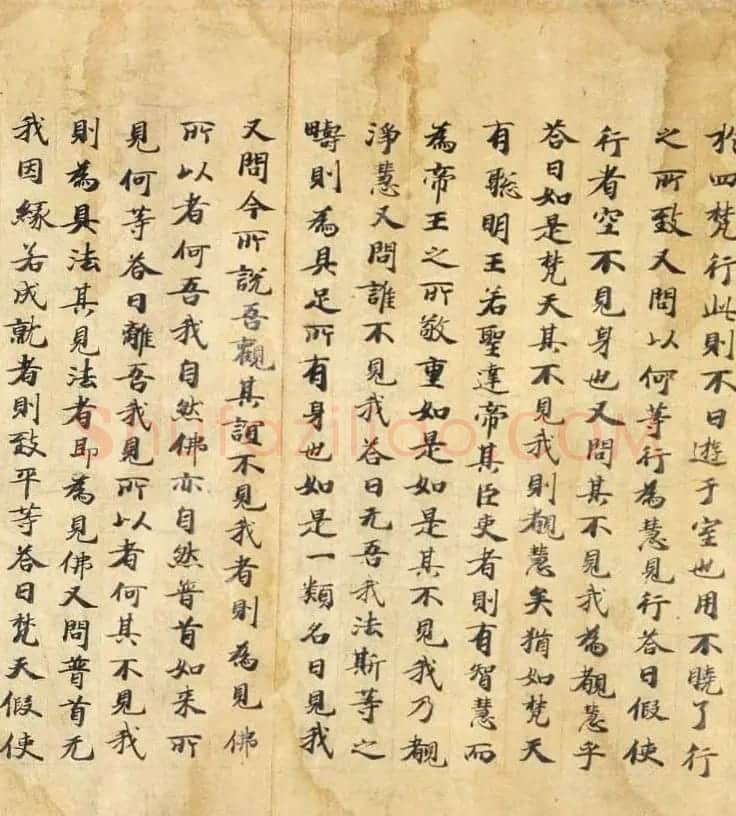 於四梵行此則不曰遊于室也用不曉了行
之所致又問以何等行為慧見行答曰假使
行者空不見身也又問其不見我為覩慧乎
答曰如是梵天其不見我則覩慧矣猶如梵天
有聡明王若聖達帝其臣吏者則有智慧而
為帝王之所敬重如是如是其不見我乃覩
淨慧又問誰不見我答曰无吾我法斯等之
疇則為具足所有身也如是一類名曰見我
又問今所說吾觀其誼不見我者則為見佛
所以者何吾我自然佛亦自然普首如來所
見何等答曰離吾我見所以者何其不見我
則為具法其見法者即為見佛又問普首无
我因緣若成就者則致平等答曰梵天假使
Shufaziliao.COM